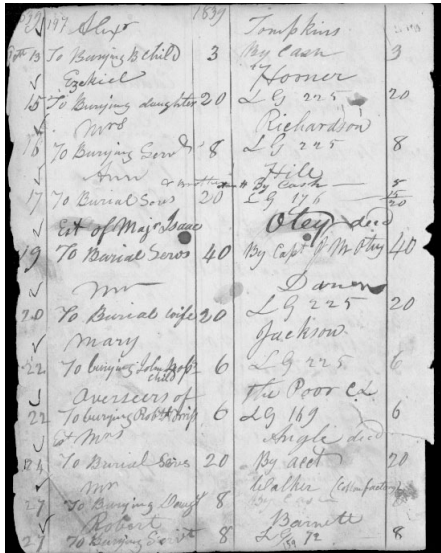 197 Alexr 1839 Tompkins
13 To Burying B child 3 By Cash 3
Ezekiel Horner
15 To Burying daughter 20 L G 225 20
Mrs Richardson
16 To Burying Servt 8 L G 225 8
Ann Hill
By Cash 5
17 To Burial Servs 20 L G 176 15
20
Est of Majr Isaac Otey decd
19 To Burial Servs 40 By Capt M Otey 40
Mr
20 To Burial wife 20 L G 225 20
Mary Jackson
22 To burying John child 6 L G 225 6
Overseers of The Poor
22 To burying Robt 6 L G 169 6
Est Mrs Angle decd
To Burial Servs 20 By acct 20
Mr Walker (Cotton factory)
27 To Burying Daugt 8 By Cash
Robert Barnett
27 To Burying Servt 8 L G 72 8